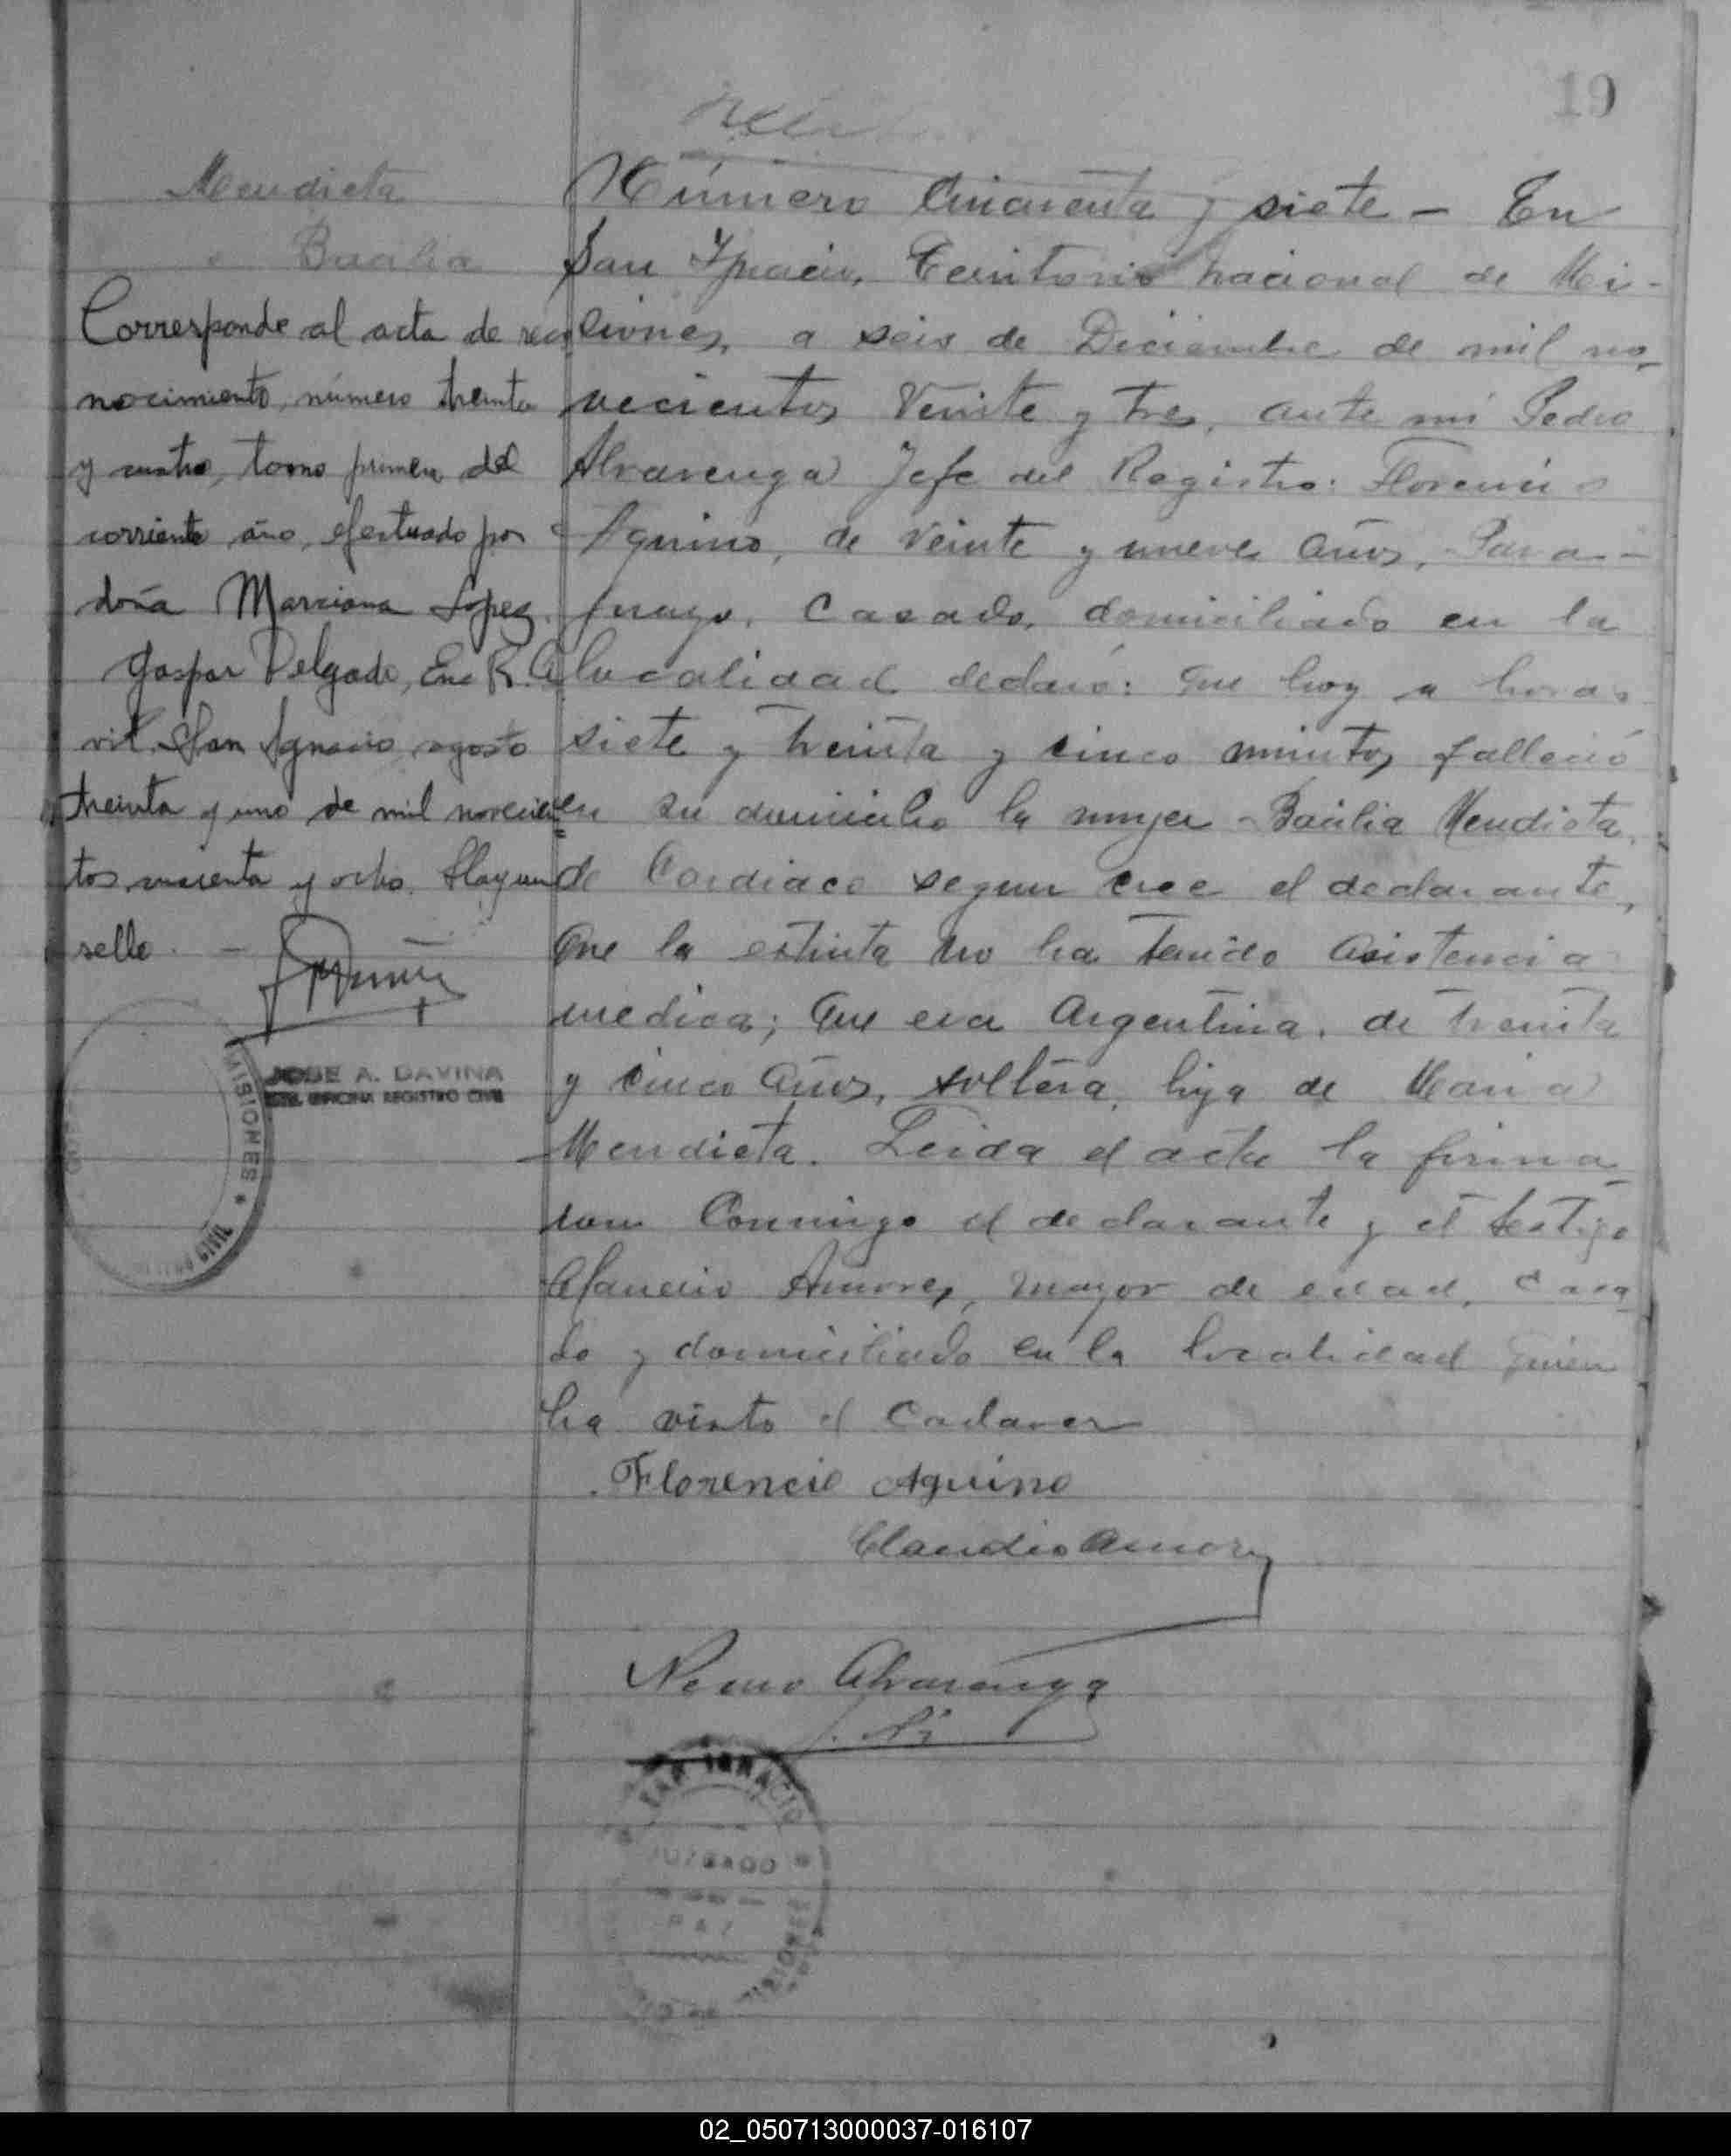 19
Mendieta
Basilia
Corresponde al acta de reco
nocimiento, número treinta
y cuatro, tomo primero del
corriente año, efectuado por
doña Marciana Lopez.
Gaspar Delgado, Enc R. Ci
vil. San Ignacio, agosto
treinta y uno de mil novecien
tos cincuenta y ocho. Hay un
sello. —
JOSE A. DAVINA
OFICINA REGISTRO CIVIL
MISIONES
CIVIL
Número Cincuenta y siete – En
San Ygnacio, Territorio nacional de Mi-
siones, a seis de Diciembre de mil no-
vecientos Veinte y tres, ante mi Pedro
Alvarenga Jefe del Registro: Florencio
Aquino, de veinte y nueve años, Para-
guayo, Casado, domiciliado en la
localidad declaró: Que hoy a horas
siete y treinta y cinco minutos falleció
en su domicilio la mujer Basilia Mendieta,
de Cardiaco segun cree el declarante,
Que la estinta no ha tenido asistencia
medica; Que era Argentina, de treinta
y cinco años, soltera, hija de Maria
Mendieta. Leida el acta la firma
ron Conmigo el declarante y el testigo
Claudio Amores, mayor de edad, casa
do y domiciliado en la localidad quien
ha visto el Cadaver
Florencio Aquino
Claudio Amores
Alvarenga
SAN IGNACIO
JUZGADO
PAZ
MISIONES
02_050713000037-016107